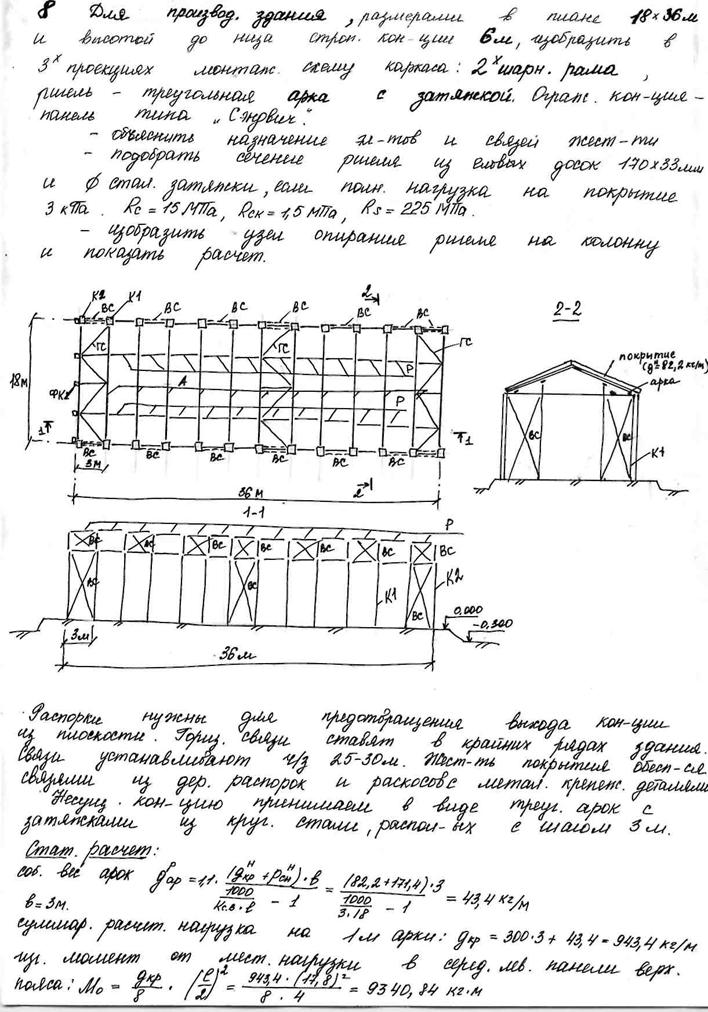 8 Для производ. здания, размерами в плане 18×36м
и высотой до низа строп. кон-ции 6м, изобразить в
3ˣ проекциях монтаж. схему каркаса: 2ˣшарн. рама,
ригель – треугольная арка с затяжкой. Огражд. кон-ция –
панель типа „Сэндвич".
– объяснить назначение эл-тов и связей жест-ти
– подобрать сечение ригеля из еловых досок 170×33мм
и ϕ стал. затяжки, если полн. нагрузка на покрытие
3 кПа. Rc = 15 МПа, Rск = 1,5 МПа, Rs = 225 МПа.
– изобразить узел опирания ригеля на колонну
и показать расчет.
К2 ВС К1 ВС ВС ВС ВС 2 ВС ВС
2-2
ГС ГС ГС
18м
Р
А
ФК2
Р
1 1
ВС ВС ВС ВС ВС ВС ВС
3м
36м 2
покрытие
(gⁿ=82,2 кг/м)
арка
ВС ВС
К1
1-1
Р
ВС ВС ВС ВС ВС ВС ВС
ВС ВС К1 ВС К2
0,000
-0,300
3м
36м
Распорки нужны для предотвращения выхода кон-ции
из плоскости. Гориз. связи ставят в крайних рядах здания.
Связи устанавливают ч/з 25-30м. Жест-ть покрытия обесп-ся
связями из дер. распорок и раскосов с метал. крепеж. деталями
Несущ. кон-цию принимаем в виде треуг. арок с
затяжками из круг. стали, распол-ых с шагом 3м.
Стат. расчет:
соб. вес арок gар = 1,1 · (gⁿкр + pⁿсн) · в / (1000 / Kс.в · l – 1) = (82,2+171,4) · 3 / (1000 / 3·18 – 1) = 43,4 кг/м
в = 3м.
суммар. расчет. нагрузка на 1м арки: gкр = 300·3 + 43,4 = 943,4 кг/м
изг. момент от мест. нагрузки в серед. лев. панели верх.
пояса: M₀ = gкр / 8 · (l / 2)² = 943,4 · (17,8)² / 8 · 4 = 9340,84 кг·м